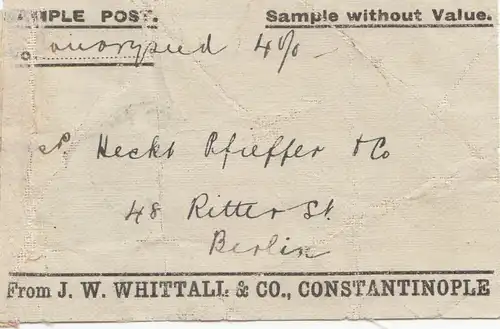 SAMPLE POST. Sample without Value.
o 4%
Heckt Pfieffer & Co
48 Ritter St.
Berlin
From J. W. WHITTALL & CO., CONSTANTINOPLE